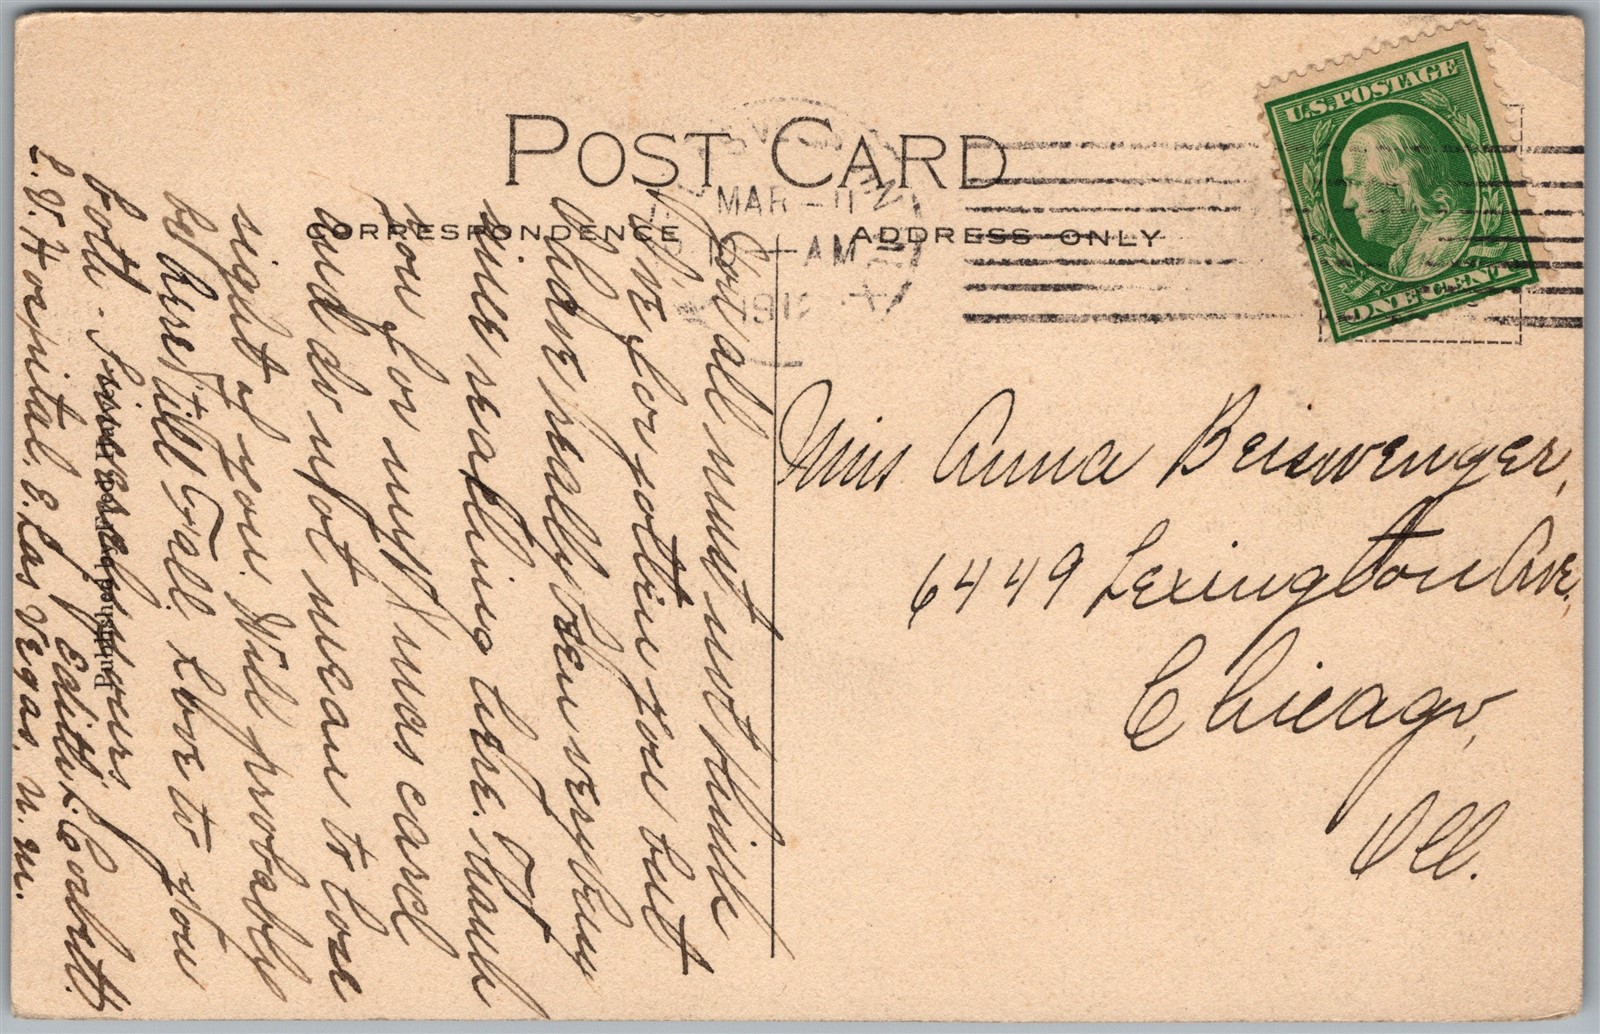 POST CARD
CORRESPONDENCE
ADDRESS ONLY
U.S. POSTAGE
ONE CENT
MAR
AM
Miss Anna Beiswenger,
6449 Lexington Ave,
Chicago,
Ill.
You al must not think
I've forgotten you but
I have really been very busy
since reaching here. Thank
you for my X'mas card
and do not mean to lose
sight of you. Will probably
be here till Fall. Love to you
both - Sincerely yours
Edith Corbett.
Hospital. E. Las Vegas, N.M.
Published